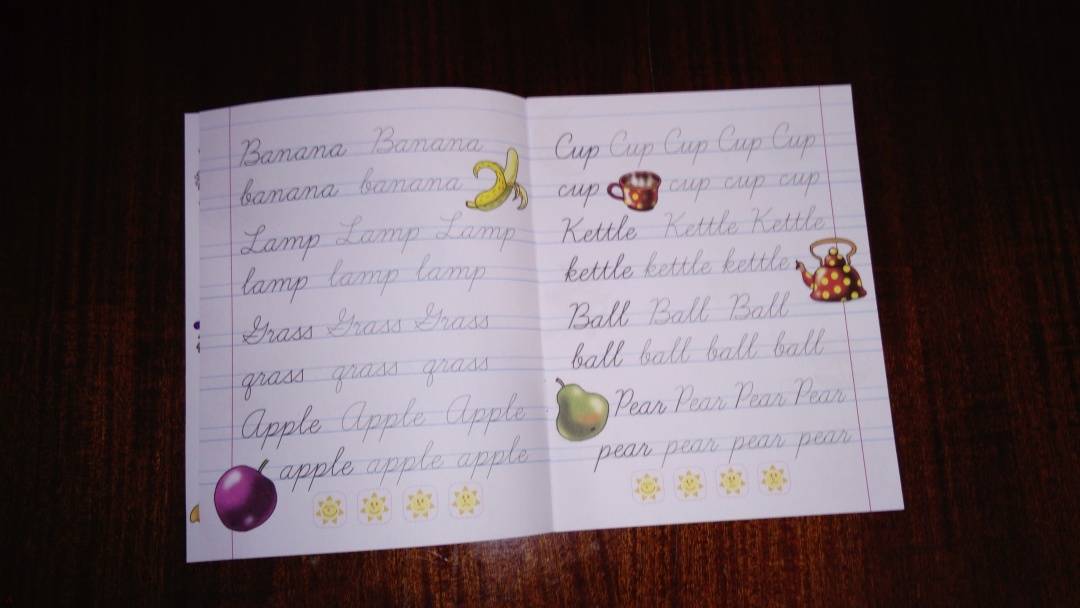 Banana Banana
banana banana
Lamp Lamp Lamp
lamp lamp lamp
Grass Grass Grass
grass grass grass
Apple Apple Apple
apple apple apple
Cup Cup Cup Cup Cup
cup cup cup cup
Kettle Kettle Kettle
kettle kettle kettle
Ball Ball Ball
ball ball ball ball
Pear Pear Pear Pear
pear pear pear pear